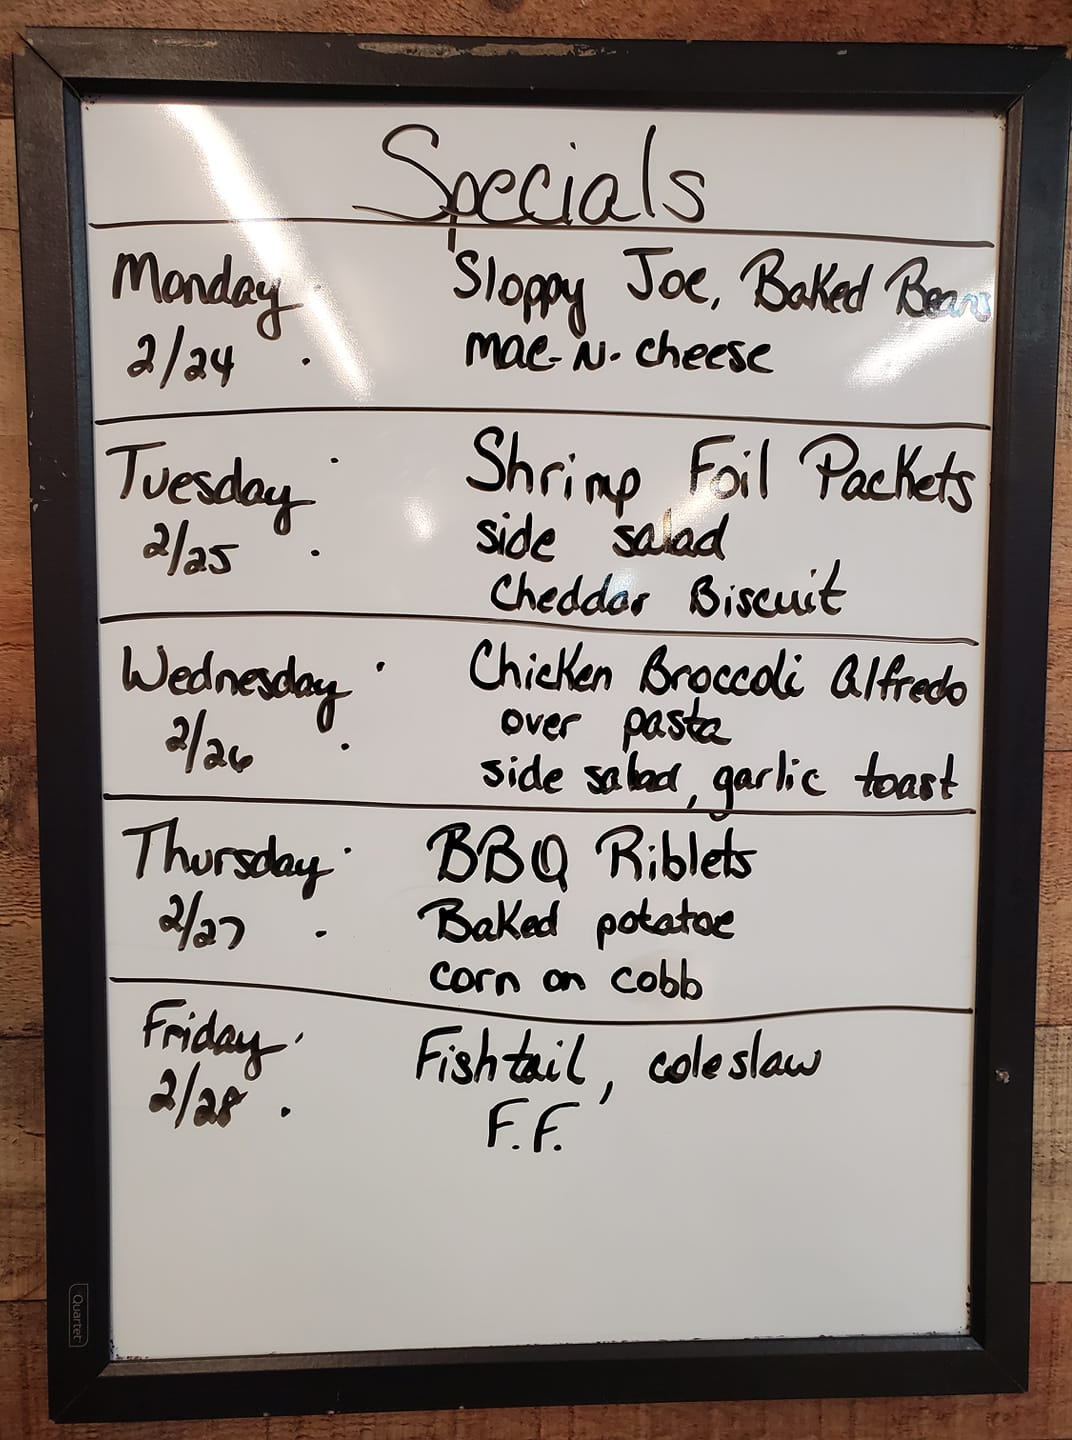 Specials
Monday: Sloppy Joe, Baked Beans
2/24 : Mac-N-cheese
Tuesday: Shrimp Foil Packets
2/25 : side salad
Cheddar Biscuit
Wednesday: Chicken Broccoli Alfredo
over pasta
2/26 : side salad, garlic toast
Thursday: BBQ Riblets
2/27 : Baked potatoe
corn on cobb
Friday: Fishtail, coleslaw
2/28 : F.F.
Quartet